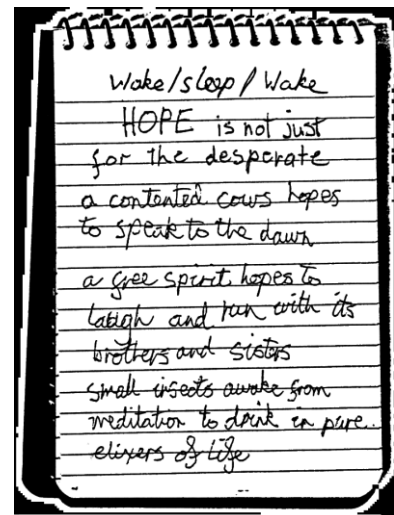 Wake/sleep/Wake
HOPE is not just
for the desperate
a contented cows hopes
to speak to the dawn
a free spirit hopes to
laugh and run with its
brothers and sisters
small insects awake from
meditation to drink in pure
elixers of life